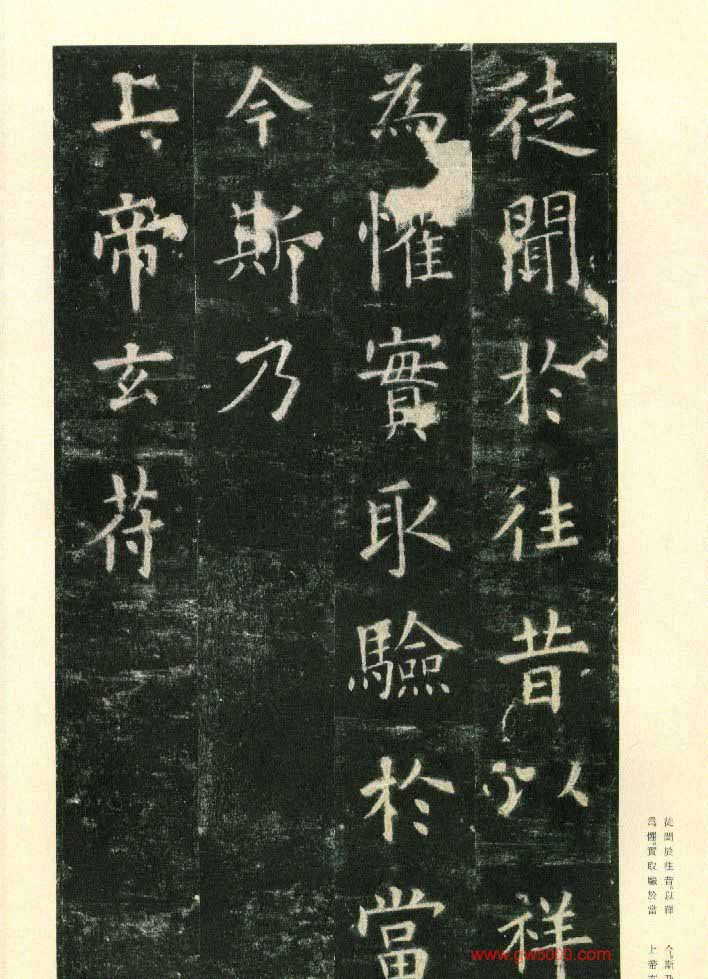 徒聞於往昔以祥
為懼實取驗於當
今斯乃
上帝玄苻
徒聞於往昔。以祥
為懼。實取驗於當
今。斯乃
上帝玄